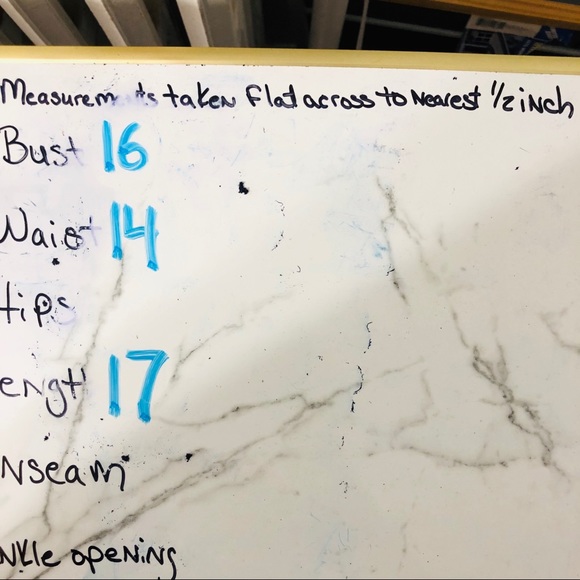 Measurem ts taken Flat across to Nearest 1/2 inch
Bust 16
Waist 14
Hips
ength 17
Nseam
Nkle opening